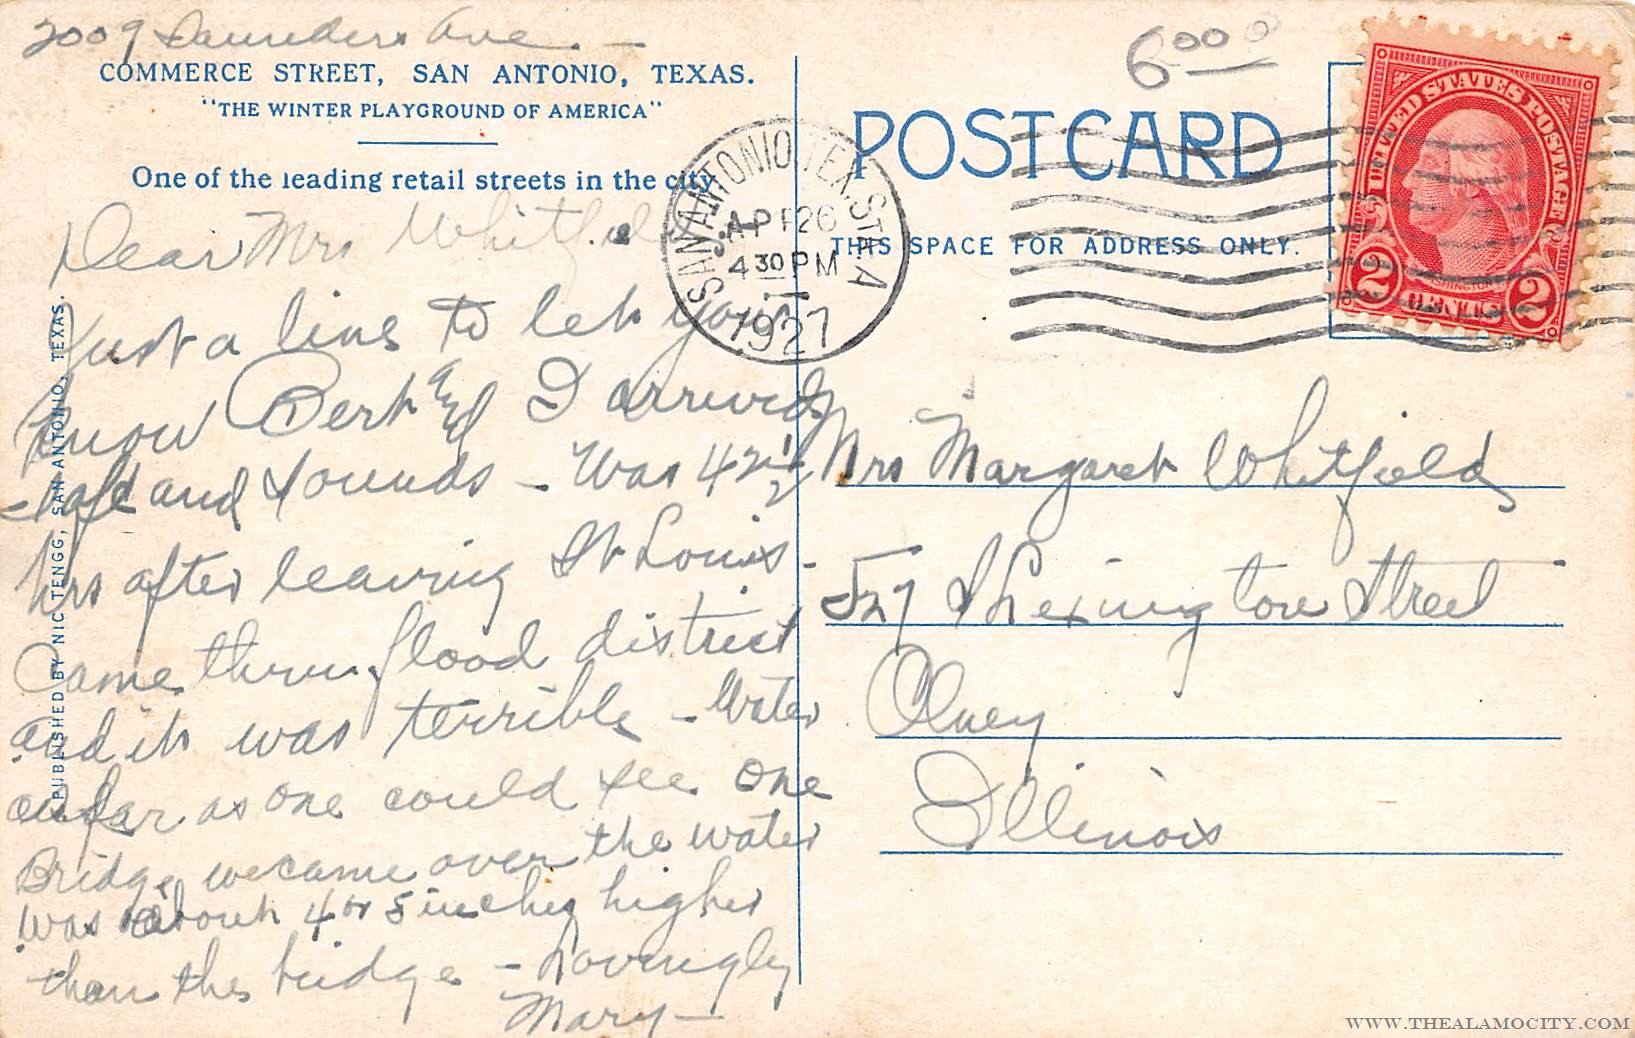 2009 Saunders Ave.
COMMERCE STREET, SAN ANTONIO, TEXAS.
"THE WINTER PLAYGROUND OF AMERICA"
One of the leading retail streets in the city.
Dear Mrs Whitfield
Just a line to let you
know Bert and I arrived
safe and sounds - Was 42 1/2
hrs after leaving St Louis -
Came thru flood district
and it was terrible - Water
as far as one could see One
Bridge we came over the water
was about 4 or 5 inches higher
than the bridge - Lovingly
Mary -
PUBLISHED BY NIC TENGG, SAN ANTONIO, TEXAS.
6000
POST CARD
THIS SPACE FOR ADDRESS ONLY.
SAN ANTONIO, TEX. STA. A
APR 26
4 30 PM
1927
UNITED STATES POSTAGE
WASHINGTON
2 CENTS 2
Mrs Margaret Whitfield
527 S Lexington Street
Olney
Illinois
WWW.THEALAMOCITY.COM